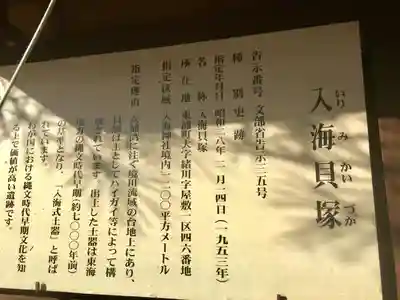 入海貝塚
いりみかいづか
告示番号 文部省告示三五号
種別 史跡
指定年月日 昭和二八年二月二四日（一九五三年）
名称 入海貝塚
所在地 東浦町大字緒川字屋敷一区四六番地
指定区域 入海神社境内二二〇〇平方メートル
指定理由 衣浦湾に注ぐ境川流域の台地上にあり、
貝層は主としてハイガイ等によって構
成されています 出土した土器は東海
地方の縄文時代早期（約七〇〇〇年前）
の基準となり、「入海式土器」と呼ば
わが国における縄文時代早期文化を知
る上で価値が高い遺跡です。